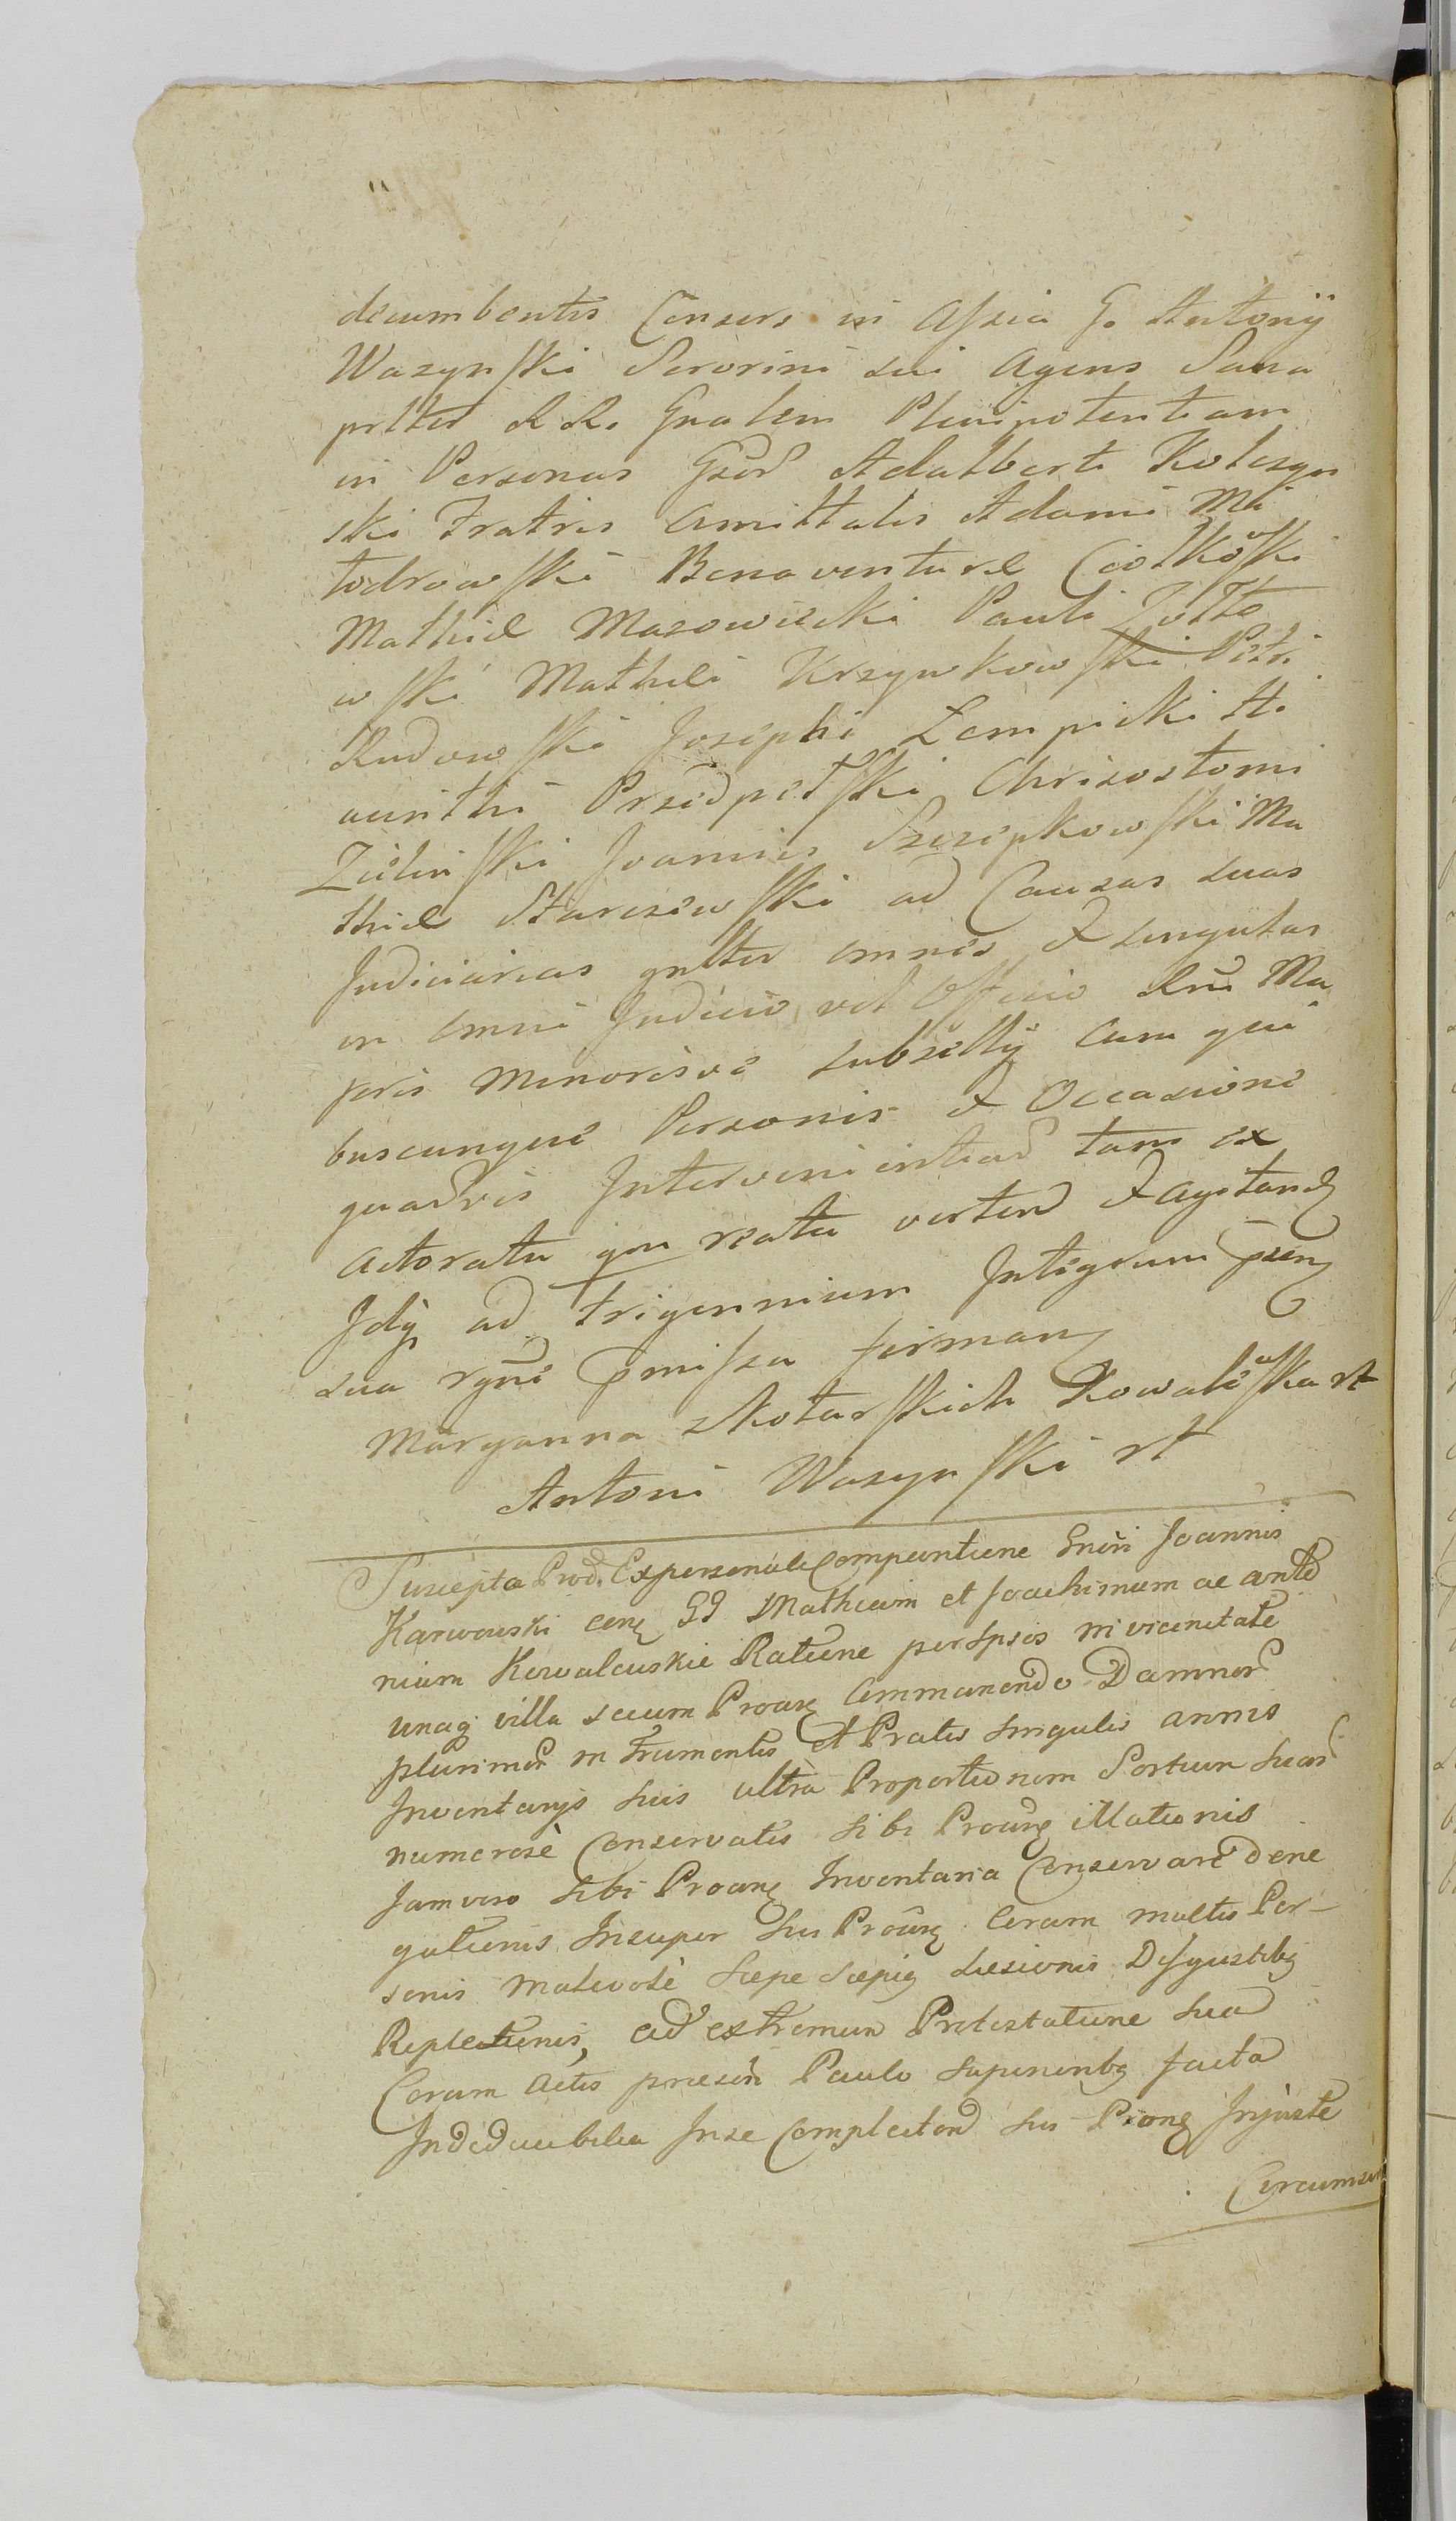 decumbentis Consors in Assia G. Antonij
Wazynski Sororini sui Agens Sana
prtter RR. Gnalem Plenipotentiam
in Personas Gsor Adalberti Kolczyn
ski Fratris Amittalis Adami Mi
lodrowski Bonaventuræ Ciolkoski
Mathiæ Mazowiecki Pauli Zolto
wski Mathei Krzynkowski Petri
Rudowski Josephi Lempicki Hi
acinthi Przedpełski Chrisostomi
Zielinski Joannis Szczepkowski Ma
thiæ Starczewski ad Causas suas
Judiciarias gnlter omnes & singulas
in omni Judicio vel Officio Rni Ma
joris Minorisve Subsellij cum qui
buscunque Personis & Occasione
quadvis Intervenientiad tam ex
Actoratu qm reatu vertend & agitand
Idq ad Trigennium Integrum psen
sua rgne pmissa firman
Maryanna z Kotarskich Kowaleska rt
Antoni Wazynski rt
Suscepta Prod. Expersonali Compantione Gnesi Joannis
Karwowski con GG Matheum et Joachimum ac Anto
nium Kowalewskie Ratione per Ipsos in vicinitate
unaq villa secum Proanz Commanendo Damnor
plurimor in Frumentis et Pratis singulis annis
Inventarijs suis ultra Proportionem Sortium suar
numerosè Conservatis sibi Proanz illationis
Jamvero sibi Proanz Inventaria Conservare dene
gationis Insuper sui Proanz Coram multis Per-
sonis malevolè sæpe sæpiq Læsionis Disgustibq
Repletionis, ad extremum Protestatione sua
Coram Actis præsen Paulo superinbq facta
Indeducibilia Inse Complectend sui Proanz Injuste
Circumsc